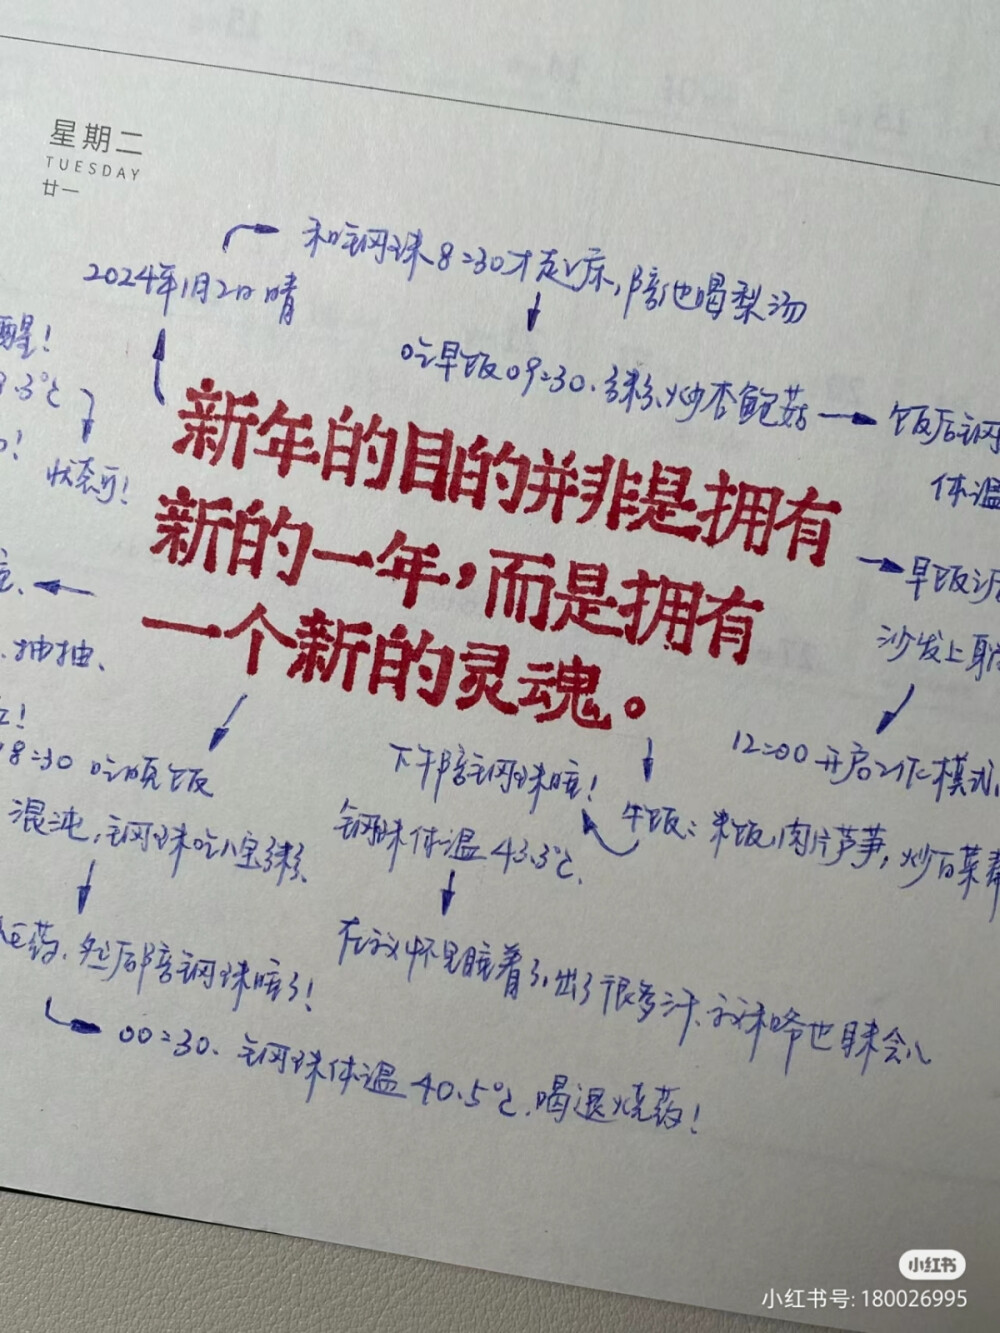 星期二
TUESDAY
廿一
和钢珠8:30才起床,陪他喝梨汤
2024年1月2日 晴
吃早饭09:30.粥、炒杏鲍菇
饭后钢
体温
醒!
.3℃
状态可!
新年的目的并非是拥有
新的一年,而是拥有
一个新的灵魂。
早饭后
沙发上躺
.抽抽、
12:00开启工作模式
8:30 吃晚饭
混沌,钢珠吃小宝粥、
下午陪钢珠睡!
钢珠体温43.3℃.
午饭:米饭,肉片芦笋,炒白菜帮
药.然后陪钢珠睡了!
在我怀里睡着了,出了很多汗、我俩也眯会儿
00:30. 钢珠体温40.5℃.喝退烧药!
小红书
小红书号: 180026995